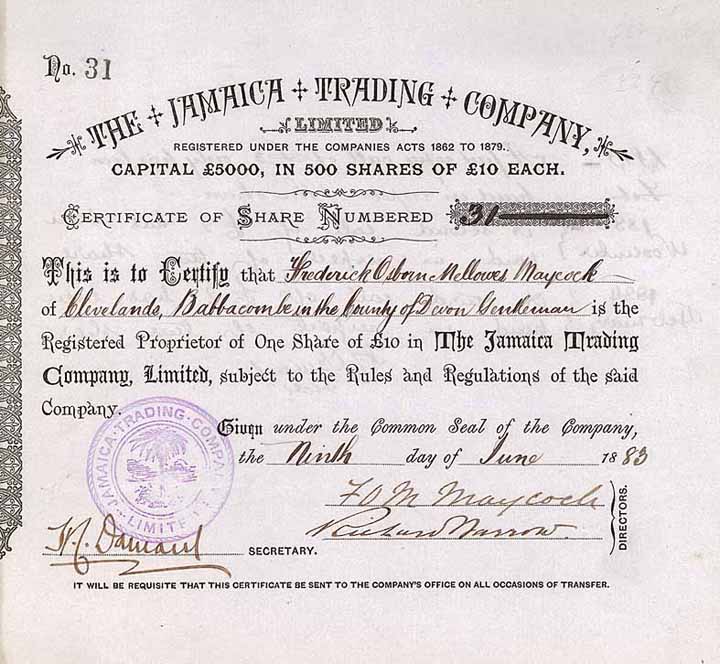 No. 31
THE JAMAICA TRADING COMPANY,
LIMITED.
REGISTERED UNDER THE COMPANIES ACTS 1862 TO 1879.
CAPITAL £5000, IN 500 SHARES OF £10 EACH.
CERTIFICATE OF SHARE NUMBERED 31
This is to Certify that Frederick Osborn Mellowes Maycock
of Clevelands, Babbacombe in the County of Devon Gentleman is the
Registered Proprietor of One Share of £10 in The Jamaica Trading
Company, Limited, subject to the Rules and Regulations of the said
Company.
Given under the Common Seal of the Company,
the Ninth day of June 1883
JAMAICA·TRADING·COMPANY
LIMITED
F O M Maycock
Richard
DIRECTORS.
SECRETARY.
IT WILL BE REQUISITE THAT THIS CERTIFICATE BE SENT TO THE COMPANY'S OFFICE ON ALL OCCASIONS OF TRANSFER.